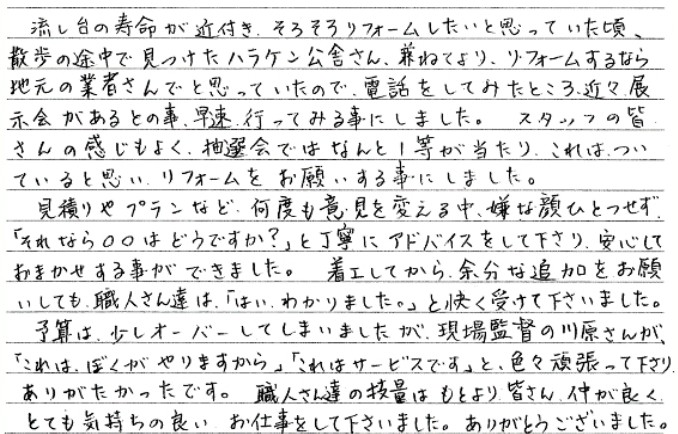 流し台の寿命が近付き、そろそろリフォームしたいと思っていた頃、
散歩の途中で見つけたハラケン公舎さん、兼ねてより、リフォームするなら
地元の業者さんでと思っていたので、電話をしてみたところ、近々、展
示会があるとの事、早速、行ってみる事にしました。 スタッフの皆
さんの感じもよく、抽選会ではなんと1等が当たり、これは、つい
ていると思い、リフォームをお願いする事にしました。
見積りやプランなど、何度も意見を変える中、嫌な顔ひとつせず、
「それなら○○はどうですか?」と丁寧にアドバイスをして下さり、安心して
おまかせする事ができました。 着工してから、余分な追加をお願
いしても、職人さん達は、「はい、わかりました。」と快く受けて下さいました。
予算は、少しオーバーしてしまいましたが、現場監督の川原さんが、
「これは、ぼくがやりますから」「これはサービスです」と、色々頑張って下さり
ありがたかったです。 職人さん達の技量はもとより、皆さん、仲が良く、
とても気持ちの良い お仕事をして下さいました。ありがとうございました。